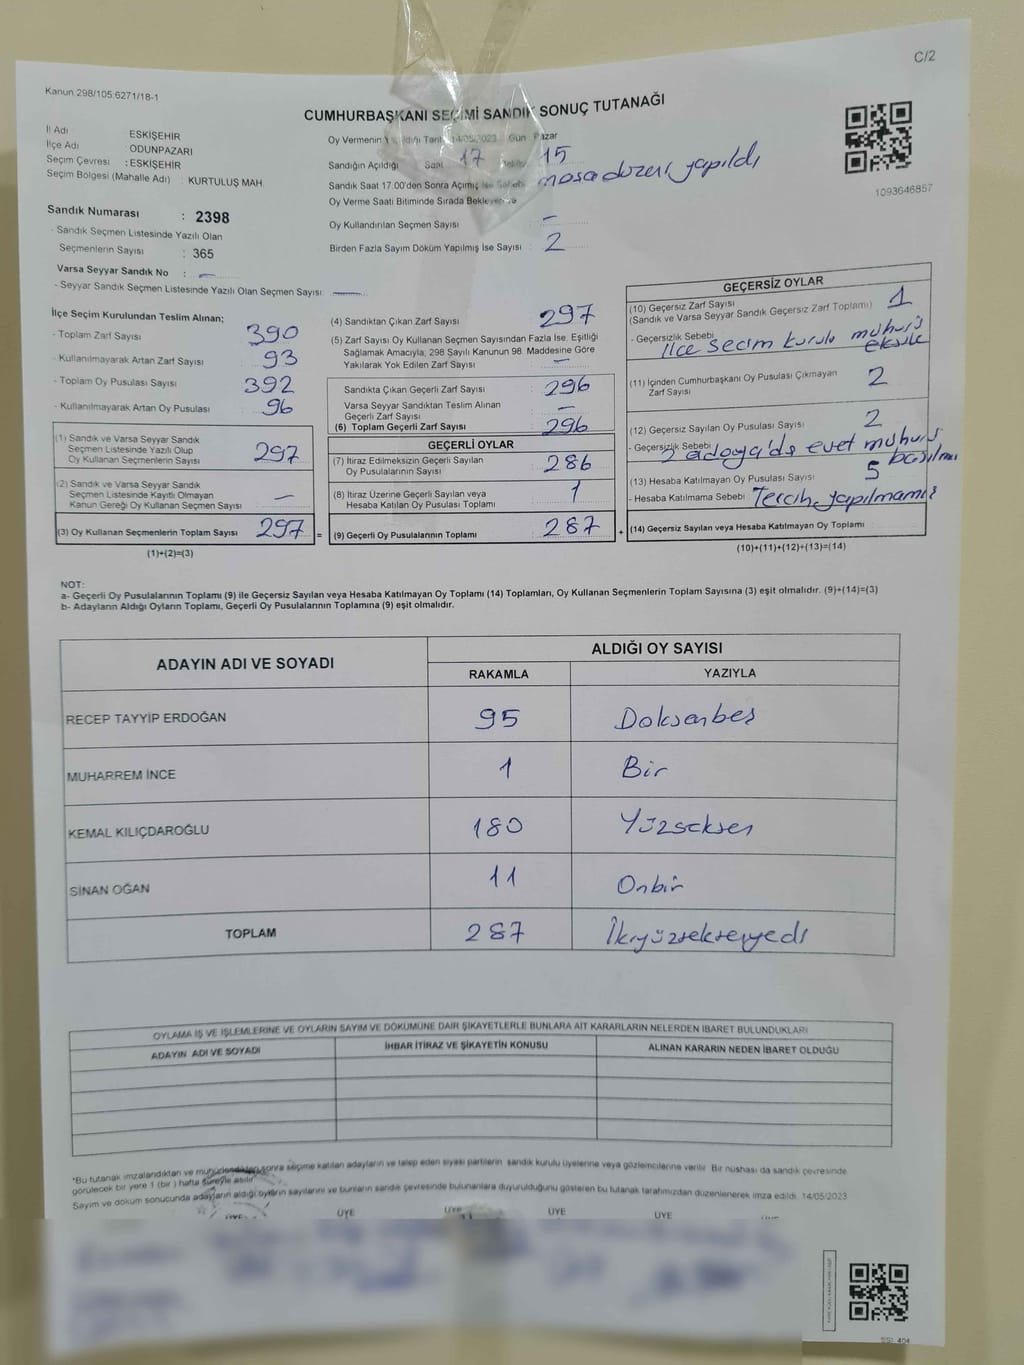 C/2
Kanun 298/105 6271/18-1
CUMHURBAŞKANI SEÇİMİ SANDIK SONUÇ TUTANAĞI
1093646857
İl Adı ESKİŞEHİR
İlçe Adı ODUNPAZARI
Seçim Çevresi : ESKİŞEHİR
Seçim Bölgesi (Mahalle Adı) : KURTULUŞ MAH.
Sandık Numarası : 2398
- Sandık Seçmen Listesinde Yazılı Olan
Seçmenlerin Sayısı : 365
Varsa Seyyar Sandık No : –
- Seyyar Sandık Seçmen Listesinde Yazılı Olan Seçmen Sayısı: –
Oy Vermenin Tarihi 14/05/2023 Gün Pazar
Sandığın Açıldığı Saat 17 15
Sandık Saat 17.00'den Sonra Açılmış İse masa düzeni yapıldı
Oy Verme Saati Bitiminde Sırada
Oy Kullandırılan Seçmen Sayısı –
Birden Fazla Sayım Döküm Yapılmış İse Sayısı : 2
İlçe Seçim Kurulundan Teslim Alınan;
- Toplam Zarf Sayısı 390
- Kullanılmayarak Artan Zarf Sayısı 93
- Toplam Oy Pusulası Sayısı 392
- Kullanılmayarak Artan Oy Pusulası 96
(1) Sandık ve Varsa Seyyar Sandık
Seçmen Listesinde Yazılı Olup
Oy Kullanan Seçmenlerin Sayısı 297
(2) Sandık ve Varsa Seyyar Sandık
Seçmen Listesinde Kayıtlı Olmayan
Kanun Gereği Oy Kullanan Seçmen Sayısı –
(3) Oy Kullanan Seçmenlerin Toplam Sayısı 297 =
(1)+(2)=(3)
(4) Sandıktan Çıkan Zarf Sayısı 297
(5) Zarf Sayısı Oy Kullanan Seçmen Sayısından Fazla İse, Eşitliği
Sağlamak Amacıyla, 298 Sayılı Kanunun 98. Maddesine Göre
Yakılarak Yok Edilen Zarf Sayısı –
Sandıkta Çıkan Geçerli Zarf Sayısı 296
Varsa Seyyar Sandıktan Teslim Alınan
Geçerli Zarf Sayısı –
(6) Toplam Geçerli Zarf Sayısı 296
GEÇERLİ OYLAR
(7) İtiraz Edilmeksizin Geçerli Sayılan
Oy Pusulalarının Sayısı 286
(8) İtiraz Üzerine Geçerli Sayılan veya
Hesaba Katılan Oy Pusulası Toplamı 1
(9) Geçerli Oy Pusulalarının Toplamı 287 +
GEÇERSİZ OYLAR
(10) Geçersiz Zarf Sayısı
(Sandık ve Varsa Seyyar Sandık Geçersiz Zarf Toplamı) 1
- Geçersizlik Sebebi
İlçe seçim kurulu mühürü
eksik
(11) İçinden Cumhurbaşkanı Oy Pusulası Çıkmayan
Zarf Sayısı 2
(12) Geçersiz Sayılan Oy Pusulası Sayısı 2
- Geçersizlik Sebebi 2 adaya'da evet mührü
basılmı
(13) Hesaba Katılmayan Oy Pusulası Sayısı 5
- Hesaba Katılmama Sebebi Tercih yapılmamış
(14) Geçersiz Sayılan veya Hesaba Katılmayan Oy Toplamı
(10)+(11)+(12)+(13)=(14)
NOT:
a- Geçerli Oy Pusulalarının Toplamı (9) ile Geçersiz Sayılan veya Hesaba Katılmayan Oy Toplamı (14) Toplamları, Oy Kullanan Seçmenlerin Toplam Sayısına (3) eşit olmalıdır. (9)+(14)=(3)
b- Adayların Aldığı Oyların Toplamı, Geçerli Oy Pusulalarının Toplamına (9) eşit olmalıdır.
ADAYIN ADI VE SOYADI
ALDIĞI OY SAYISI
RAKAMLA YAZIYLA
RECEP TAYYİP ERDOĞAN 95 Doksanbeş
MUHARREM İNCE 1 Bir
KEMAL KILIÇDAROĞLU 180 Yüzseksen
SİNAN OĞAN 11 Onbir
TOPLAM 287 İkiyüzseksenyedi
OYLAMA İŞ VE İŞLEMLERİNE VE OYLARIN SAYIM VE DÖKÜMÜNE DAİR ŞİKAYETLERLE BUNLARA AİT KARARLARIN NELERDEN İBARET BULUNDUKLARI
ADAYIN ADI VE SOYADI İHBAR İTİRAZ VE ŞİKAYETİN KONUSU ALINAN KARARIN NEDEN İBARET OLDUĞU
*Bu tutanak imzalandıktan ve mühürlendikten sonra seçime katılan adayların ve talep eden siyasi partilerin sandık kurulu üyelerine veya gözlemcilerine verilir. Bir nüshası da sandık çevresinde
görülecek bir yere 1 (bir) hafta süreyle asılır.
Sayım ve döküm sonucunda adayların aldığı oyların sayılarını ve bunların sandık çevresinde bulunanlara duyurulduğunu gösteren bu tutanak tarafımızdan düzenlenerek imza edildi. 14/05/2023
ÜYE ÜYE ÜYE ÜYE ÜYE